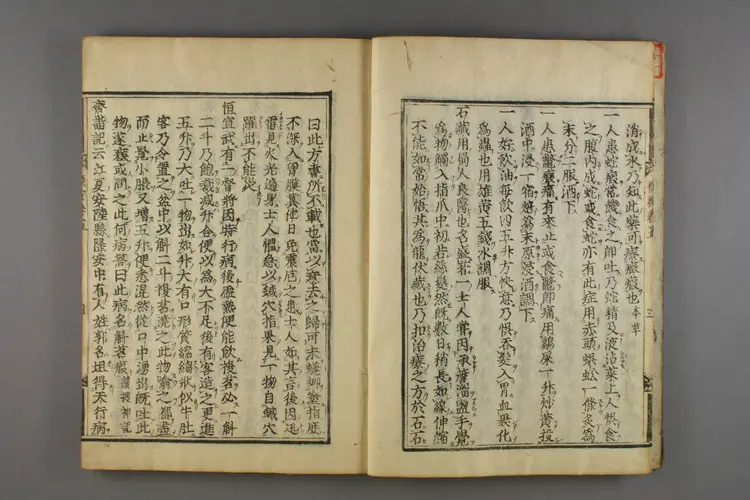 消成水乃知此藥可療癥瘕也本草
一人患蛇瘕常饑食之卽吐乃蛇精及液沾菜上人悞食
之腹內成蛇或食蛇亦有此症用赤頭蜈蚣一條炙爲
末分二服酒下
一人患鱉瘕痛有來止或食鱉卽痛用雞屎一升炒黃投
酒中浸一宿焙爲末原浸酒調下
一人好飲油每飲四五升方快意乃悞吞髮入胃血裹化
爲蟲也用雄黃五錢水調服
石藏用蜀人良醫也名盛著一士人嘗因承簷溜盥手覺
爲物觸入指爪中初若絲髮然旣數日稍長如線伸縮
不能如常始悟其爲龍伏藏也乃扣治療之方於石石
曰此方書所不載也當以意去之歸可末蜣蜋塗指庶
不深入胃膜冀他日免震厄之患士人如其言後因迅
雷見火光遶身士人懼急以鍼穴指果見一物自鍼穴
躍出不能災
恒宣武有一督將因時行病後虛熱便能飲復茗必一斛
二斗乃飽裁減升合便以爲大不足後有客造之更進
五升乃大吐一物出如升大有口形質縮縐狀似牛肚
客乃令置之盆中以斛二斗復茗澆之此物翕之都盡
而止覺小脹又增五升便悉混然從口中湧出旣吐此
物遂差或問之此何病答曰此病名斛茗瘕續搜神記
齊諧記云江夏安陸縣隆安中有人姓郭名坦得天行病
三